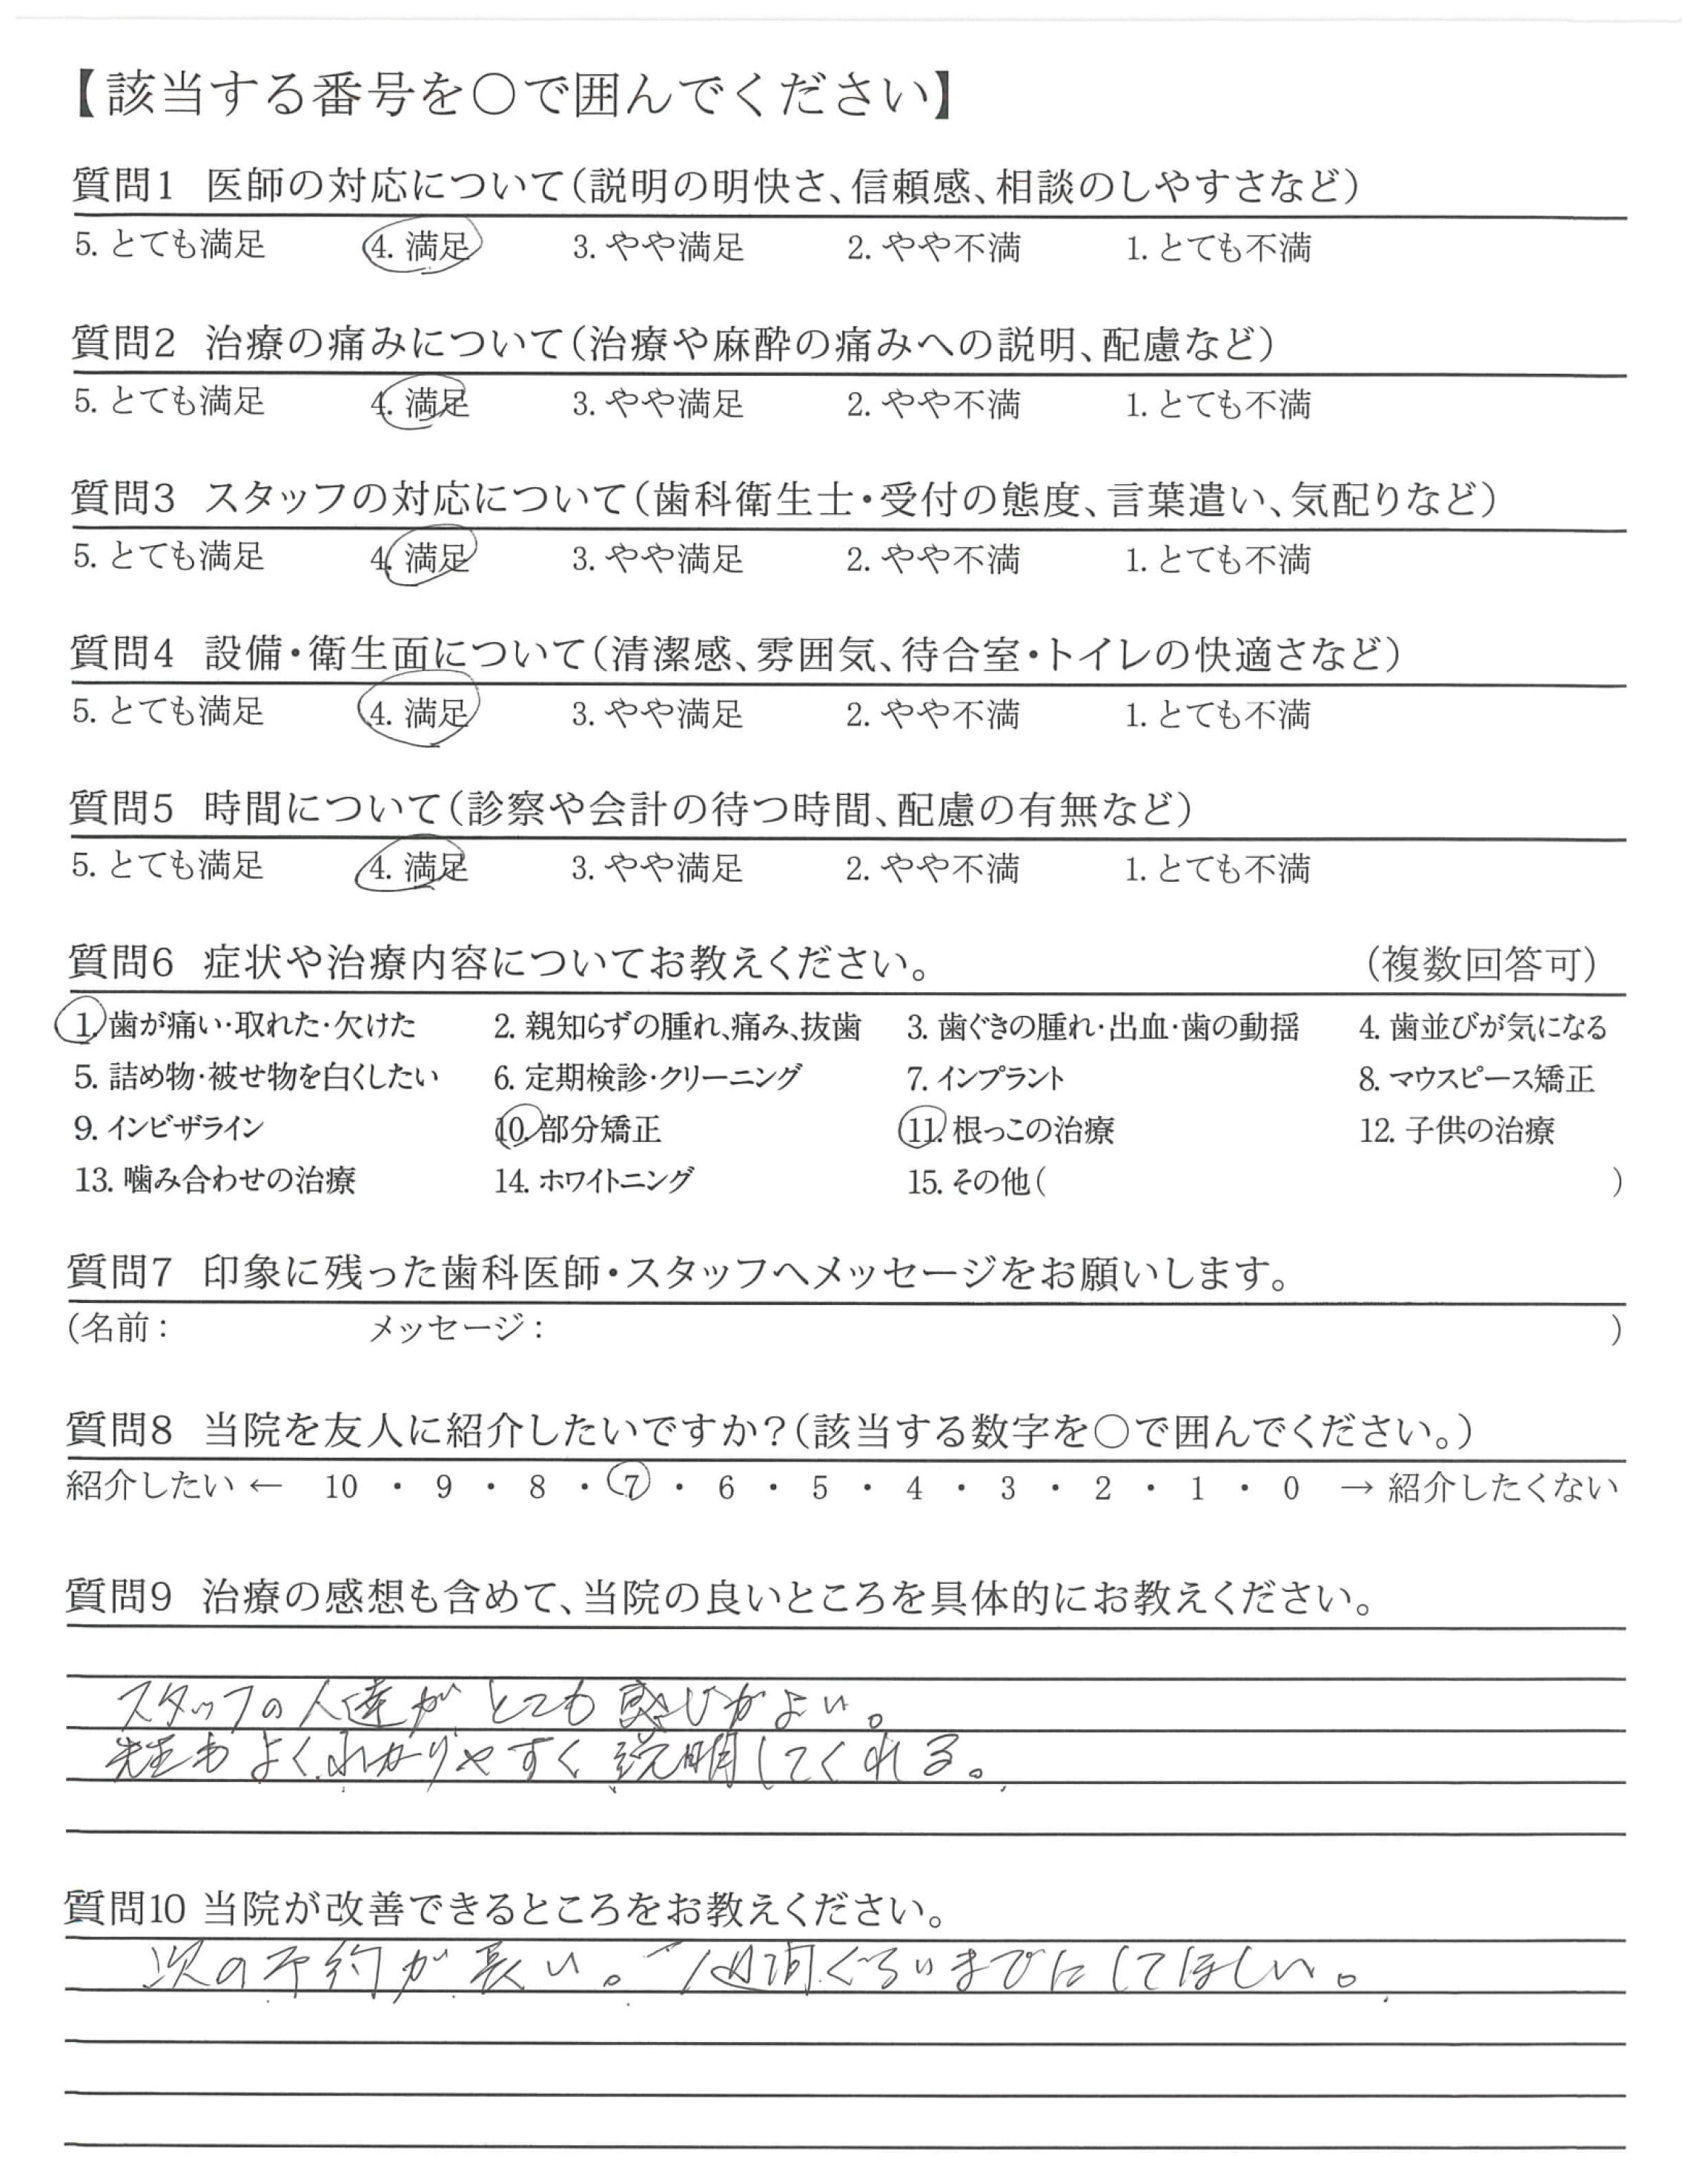 【該当する番号を○で囲んでください】
質問1 医師の対応について(説明の明快さ、信頼感、相談のしやすさなど)
5. とても満足 4. 満足 3. やや満足 2. やや不満 1. とても不満
質問2 治療の痛みについて(治療や麻酔の痛みへの説明、配慮など)
5. とても満足 4. 満足 3. やや満足 2. やや不満 1. とても不満
質問3 スタッフの対応について(歯科衛生士・受付の態度、言葉遣い、気配りなど)
5. とても満足 4. 満足 3. やや満足 2. やや不満 1. とても不満
質問4 設備・衛生面について(清潔感、雰囲気、待合室・トイレの快適さなど)
5. とても満足 4. 満足 3. やや満足 2. やや不満 1. とても不満
質問5 時間について(診察や会計の待つ時間、配慮の有無など)
5. とても満足 4. 満足 3. やや満足 2. やや不満 1. とても不満
質問6 症状や治療内容についてお教えください。 (複数回答可)
1. 歯が痛い・取れた・欠けた 2. 親知らずの腫れ、痛み、抜歯 3. 歯ぐきの腫れ・出血・歯の動揺 4. 歯並びが気になる
5. 詰め物・被せ物を白くしたい 6. 定期検診・クリーニング 7. インプラント 8. マウスピース矯正
9. インビザライン 10. 部分矯正 11. 根っこの治療 12. 子供の治療
13. 噛み合わせの治療 14. ホワイトニング 15. その他( )
質問7 印象に残った歯科医師・スタッフへメッセージをお願いします。
(名前: メッセージ: )
質問8 当院を友人に紹介したいですか?(該当する数字を○で囲んでください。)
紹介したい ← 10 ・ 9 ・ 8 ・ 7 ・ 6 ・ 5 ・ 4 ・ 3 ・ 2 ・ 1 ・ 0 → 紹介したくない
質問9 治療の感想も含めて、当院の良いところを具体的にお教えください。
スタッフの人達がとても感じがよい。
先生もよくわかりやすく説明してくれる。
質問10 当院が改善できるところをお教えください。
次の予約が長い。1週間ぐらいまでにしてほしい。